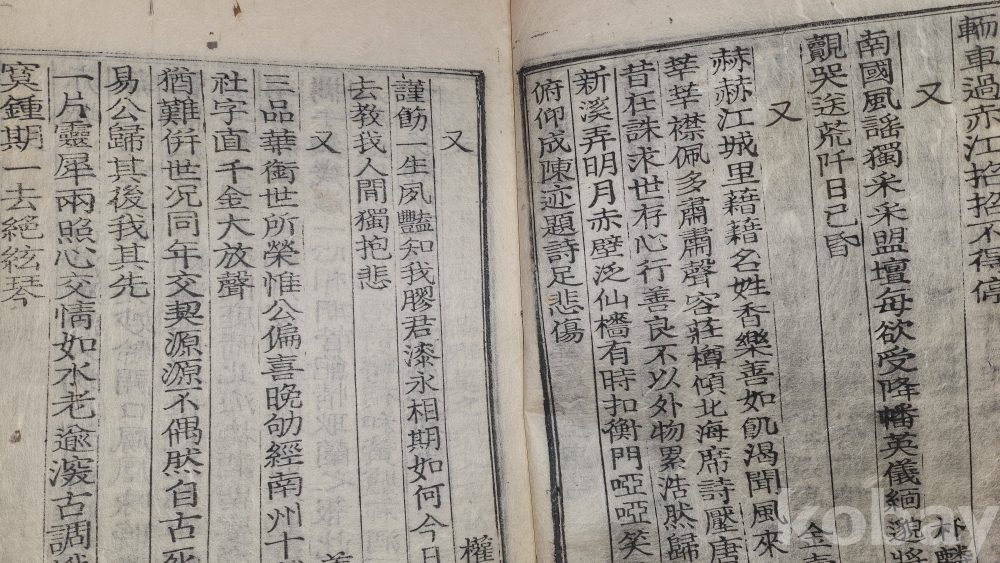 輀車過赤江招招不得停
又 朴麟
南國風謠獨采采盟壇每欲受降幡英儀緬邈將
覿哭送荒阡日已昏
又 全
赫赫江城里藉藉名姓香樂善如飢渴聞風來
莘莘襟佩多肅肅聲容莊樽傾北海席詩壓唐
昔在誅求世存心行善良不以外物累浩然歸
新溪弄明月赤壁泛仙檣有時扣衡門啞啞笑
俯仰成陳迹題詩足悲傷
又 權
謹飭一生夙豔知我膠君漆永相期如何今日
去教我人間獨抱悲
又
三品華銜世所榮惟公偏喜晚劬經南州十
社字直千金大放聲
猶難併世况同年交契源源不偶然自古死
易公歸其後我其先
一片靈犀兩照心交情如水老逾深古調
冥鍾期一去絕絃琴
kobay